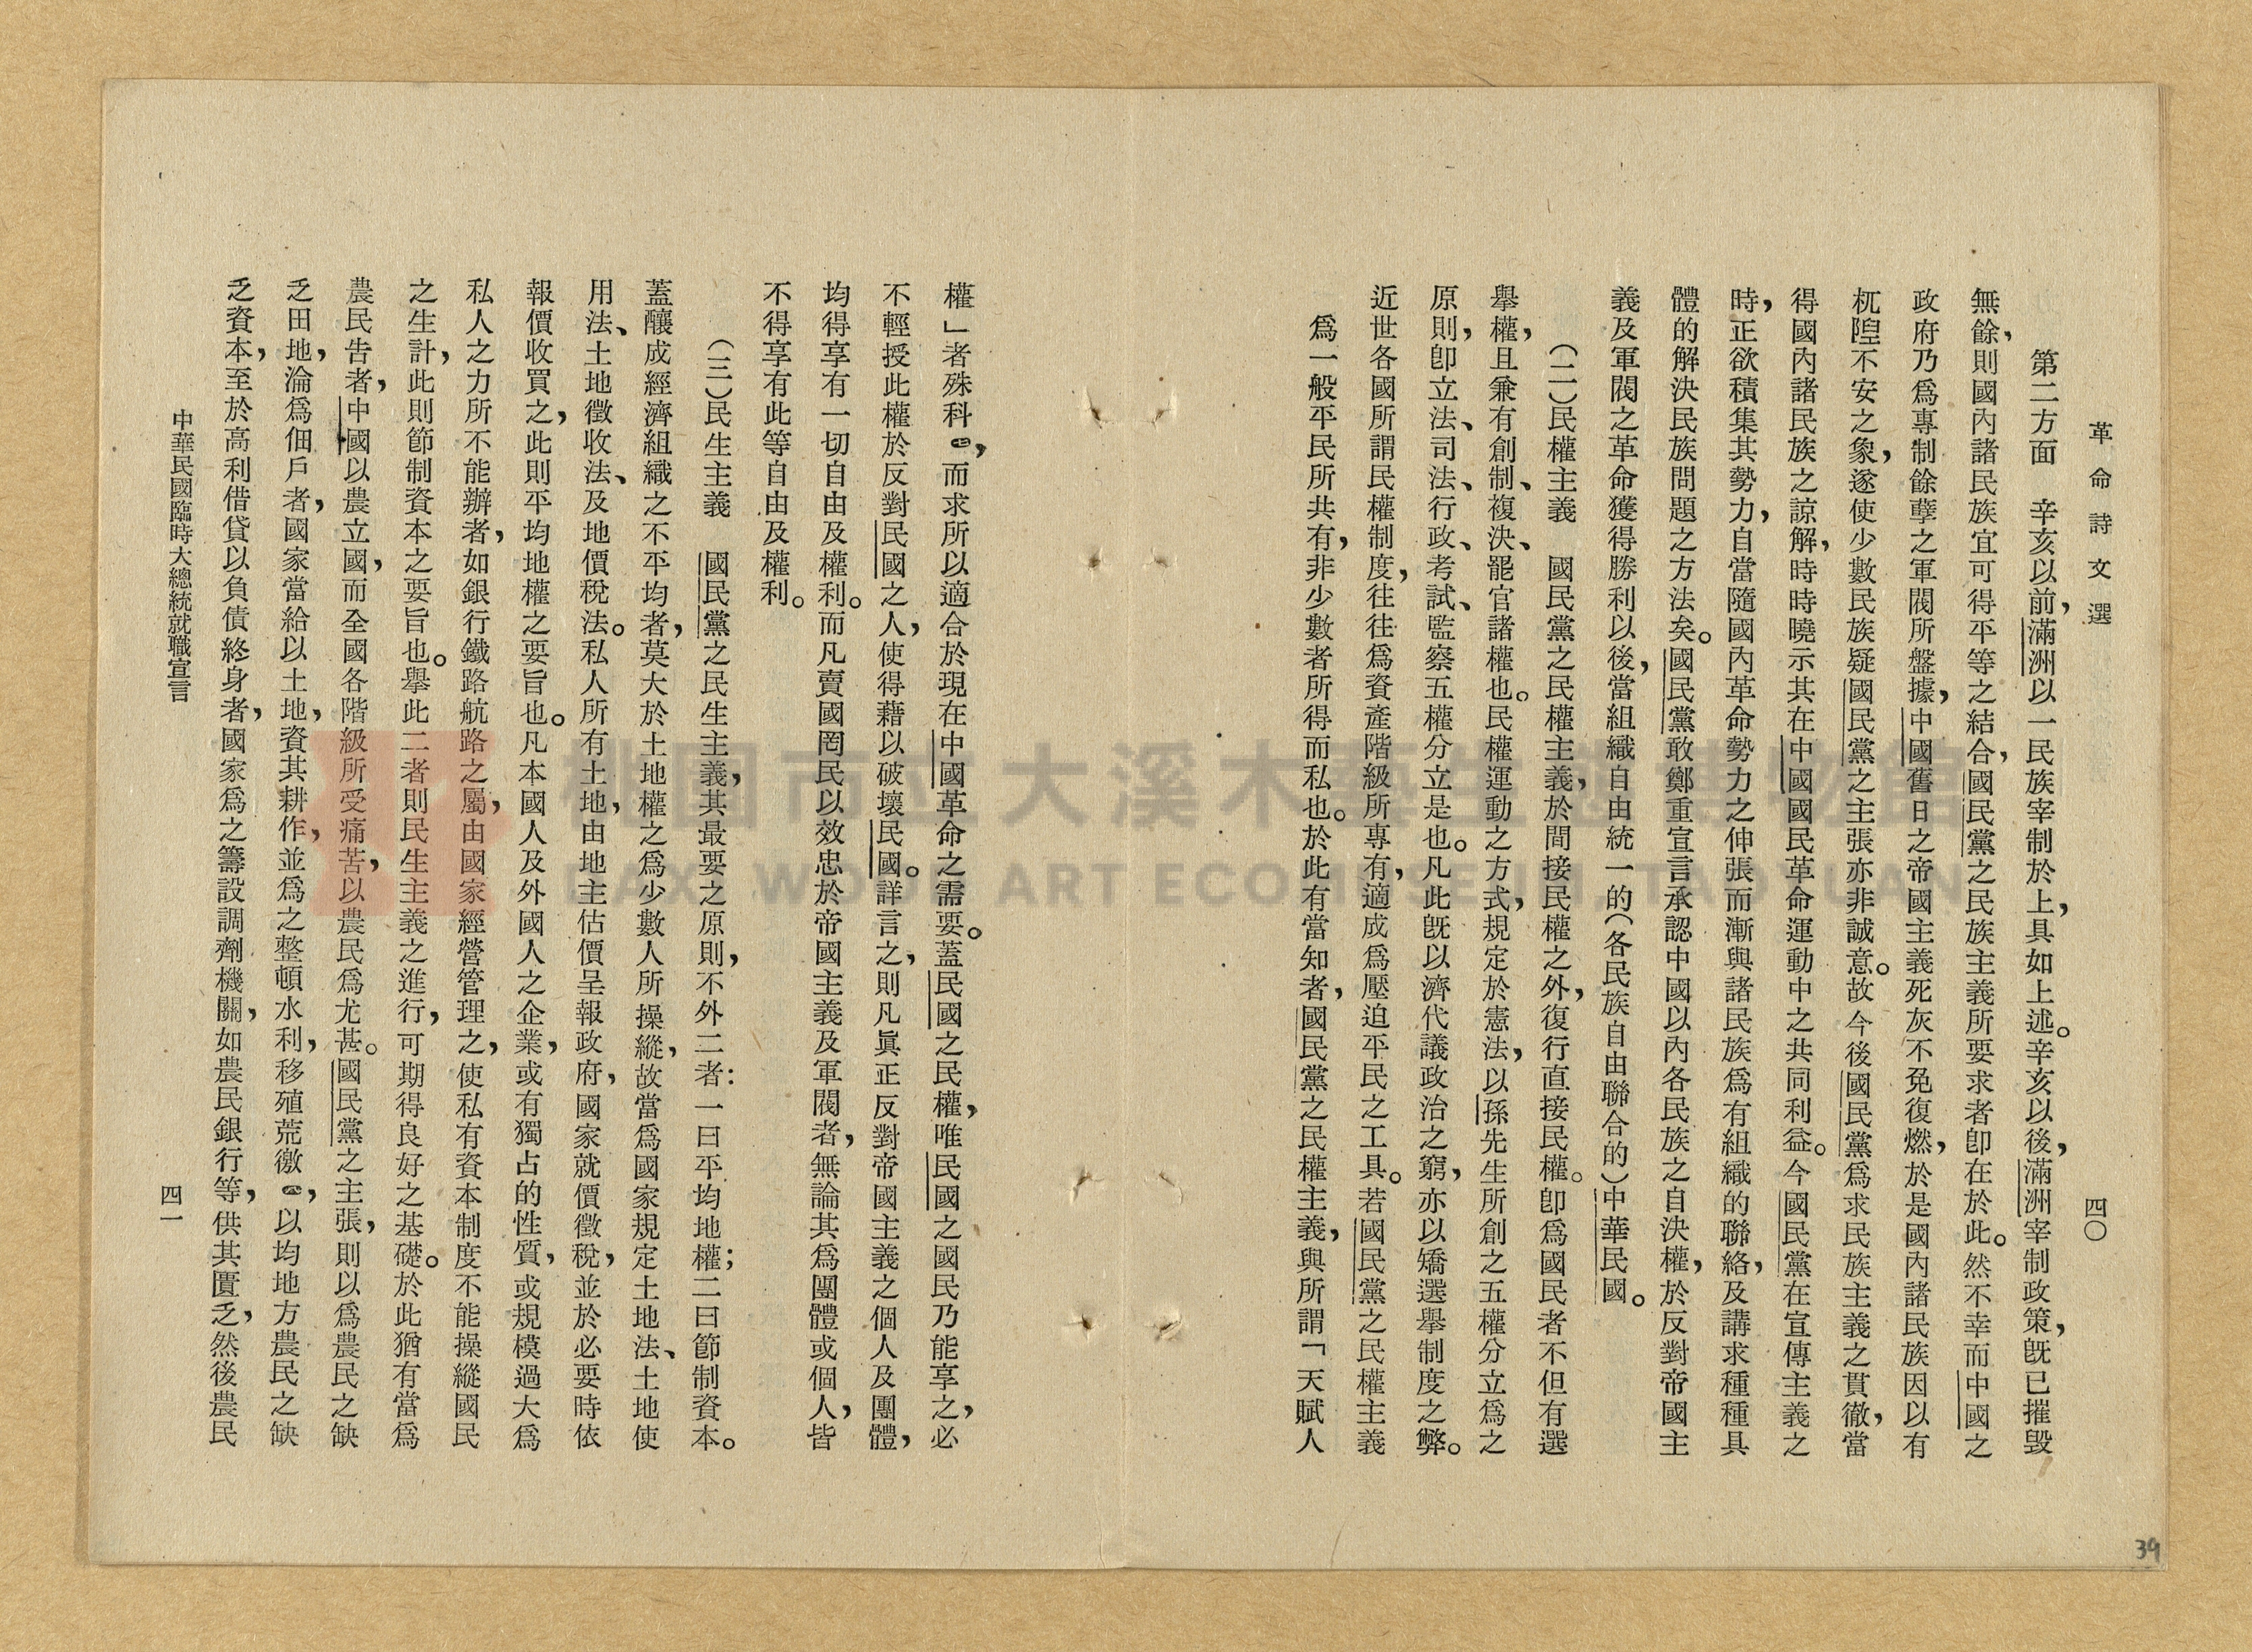 革命詩文選
四〇
第二方面　辛亥以前，滿洲以一民族宰制於上，具如上述。辛亥以後，滿洲宰制政策，既已摧毀
無餘，則國內諸民族宜可得平等之結合，國民黨之民族主義所要求者卽在於此。然不幸而中國之
政府乃爲專制餘孽之軍閥所盤據，中國舊日之帝國主義死灰不免復燃，於是國內諸民族因以有
杌隉不安之象，遂使少數民族疑國民黨之主張亦非誠意。故今後國民黨爲求民族主義之貫徹，當
得國內諸民族之諒解，時時曉示其在中國國民革命運動中之共同利益。今國民黨在宣傳主義之
時，正欲積集其勢力，自當隨國內革命勢力之伸張而漸與諸民族爲有組織的聯絡，及講求種種具
體的解決民族問題之方法矣。國民黨敢鄭重宣言承認中國以內各民族之自決權，於反對帝國主
義及軍閥之革命獲得勝利以後，當組織自由統一的（各民族自由聯合的）中華民國。
（二）民權主義　國民黨之民權主義，於間接民權之外，復行直接民權。卽爲國民者不但有選
舉權，且兼有創制、複決、罷官諸權也。民權運動之方式，規定於憲法，以孫先生所創之五權分立爲之
原則，卽立法、司法、行政、考試、監察五權分立是也。凡此既以濟代議政治之窮，亦以矯選舉制度之弊。
近世各國所謂民權制度，往往爲資產階級所專有，適成爲壓迫平民之工具。若國民黨之民權主義
爲一般平民所共有，非少數者所得而私也。於此有當知者，國民黨之民權主義，與所謂「天賦人
權」者殊科㊀，而求所以適合於現在中國革命之需要。蓋民國之民權，唯民國之國民乃能享之，必
不輕授此權於反對民國之人，使得藉以破壞民國。詳言之，則凡眞正反對帝國主義之個人及團體，
均得享有一切自由及權利。而凡賣國罔民以效忠於帝國主義及軍閥者，無論其爲團體或個人，皆
不得享有此等自由及權利。
（三）民生主義　國民黨之民生主義，其最要之原則，不外二者：一曰平均地權；二曰節制資本。
蓋釀成經濟組織之不平均者，莫大於土地權之爲少數人所操縱，故當爲國家規定土地法、土地使
用法、土地徵收法、及地價稅法。私人所有土地，由地主估價呈報政府，國家就價徵稅，並於必要時依
報價收買之，此則平均地權之要旨也。凡本國人及外國人之企業，或有獨占的性質，或規模過大爲
私人之力所不能辦者，如銀行鐵路航路之屬，由國家經營管理之，使私有資本制度不能操縱國民
之生計，此則節制資本之要旨也。舉此二者則民生主義之進行，可期得良好之基礎。於此猶有當爲
農民告者，中國以農立國，而全國各階級所受痛苦，以農民爲尤甚。國民黨之主張，則以爲農民之缺
乏田地，淪爲佃戶者，國家當給以土地，資其耕作，並爲之整頓水利，移殖荒徼㊁，以均地方農民之缺
乏資本，至於高利借貸以負債終身者，國家爲之籌設調劑機關，如農民銀行等，供其匱乏，然後農民
中華民國臨時大總統就職宣言
四一
39
桃園市立大溪木藝生態博物館
DAXI WOOD ART ECOMUSEUM, TAOYUAN